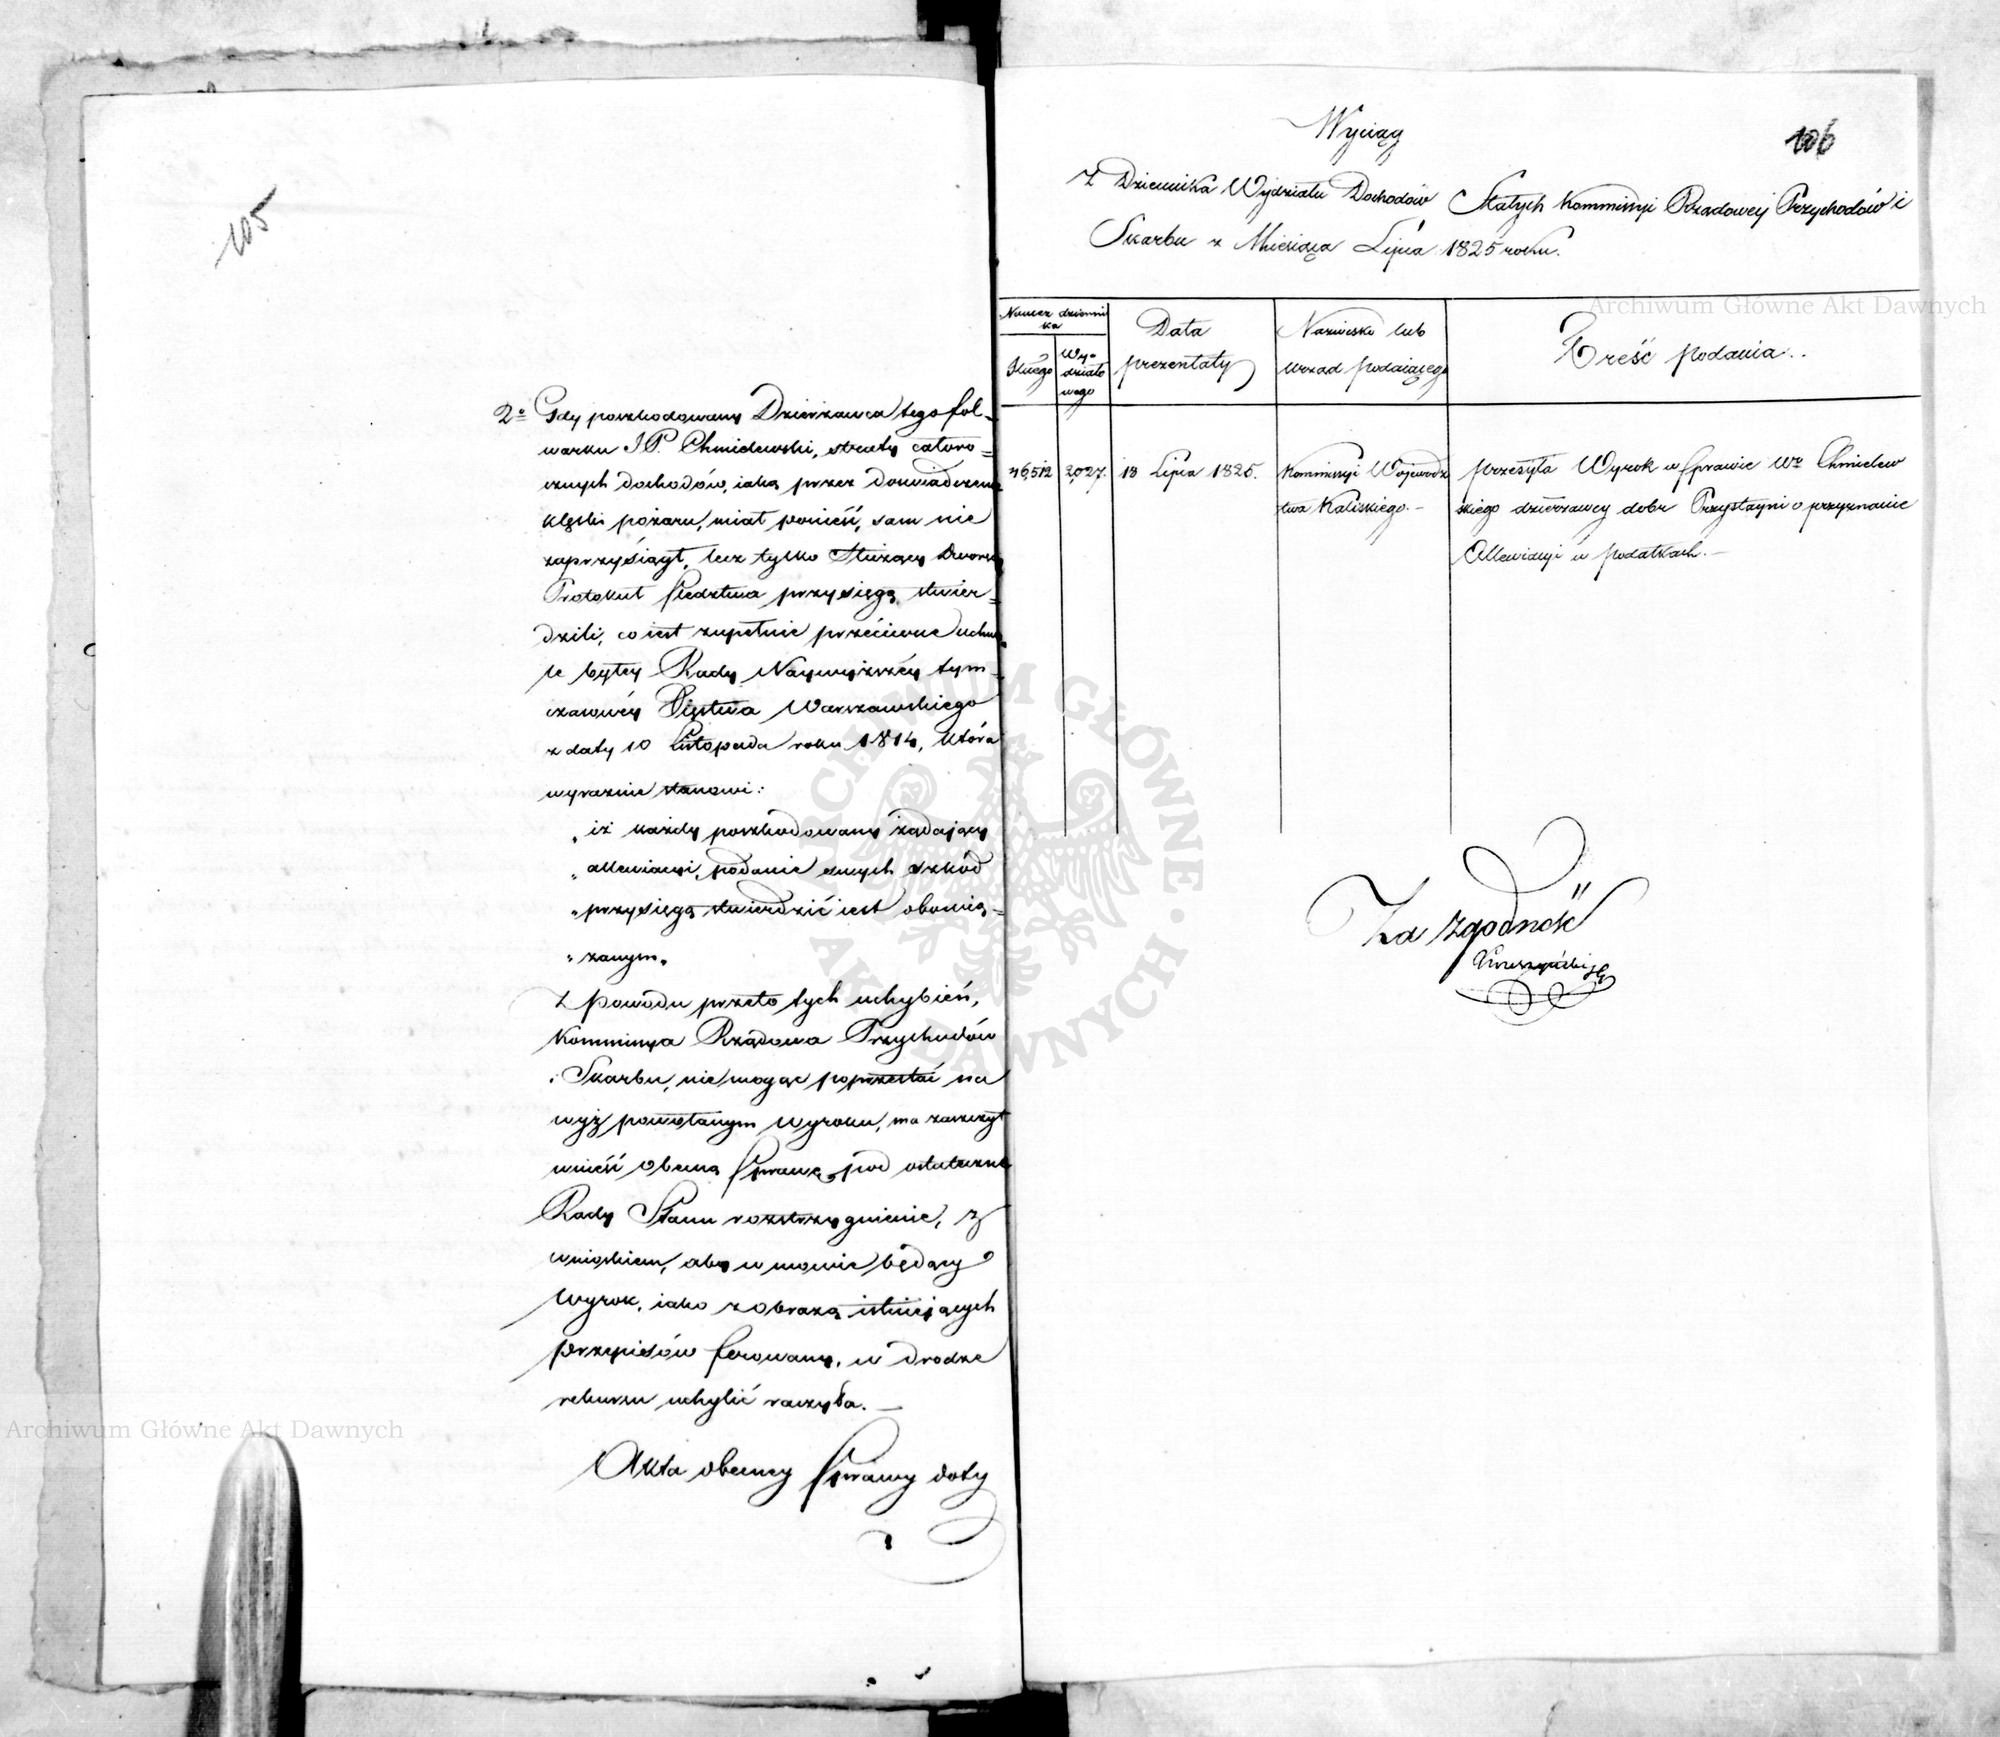 105
2º Gdy poszkodowany Dzierżawca tego fol=
warku J.P. Chmielewski, straty całoro=
cznych dochodów, iaką przez doświadczenie
klęski pożaru, miał ponieść, sam nie
zaprzysiągł, lecz tylko Służący Dworscy
Protokuł śledztwa przysięgą stwier=
dzili, co iest zupełnie przeciwne uchwa=
le byłey Rady Naywyższéy tym=
czasowéy Xięstwa Warszawskiego
z daty 10 Listopada roku 1814, która
wyraźnie stanowi:
„ iż każdy poszkodowany żądający
„ allewiacyi, podanie swych szkód
„ przysięgą stwierdzić iest obowią=
„ zanym.
Z powodu przeto tych uchybień,
Kommissya Rządowa Przychodów
i Skarbu, nie mogąc poprzestać na
wyż powołanym wyroku, ma zaszczyt
wnieść obecną sprawę pod ostateczne
Rady Stanu rozstrzygnienie, z
wnioskiem, aby w mowie będący
wyrok, iako z obrazą istniejących
przepisów ferowany, w drodze
rekursu uchylić raczyła. —
Akta obecney sprawy doty
106
Wyciąg
z Dziennika Wydziału Dochodów Stałych Kommissyi Rządowey Przychodów i
Skarbu z Miesiąca Lipca 1825 roku.
Numer dzienni
ka
Wy=
działo
wego
Data
prezentaty
Nazwisko lub
urząd podaiącego
Treść podania..
46,512 2,027. 18 Lipca 1825. Kommissyi Wojewodz przesyła Wyrok w sprawie Wº Chmielew
twa Kaliskiego. — skiego dzierżawcy dobr Przystayni o przyznanie
Allewiacyi w podatkach. —
Za zgodność
Archiwum Główne Akt Dawnych
Archiwum Główne Akt Dawnych
ARCHIWUM GŁÓWNE AKT DAWNYCH